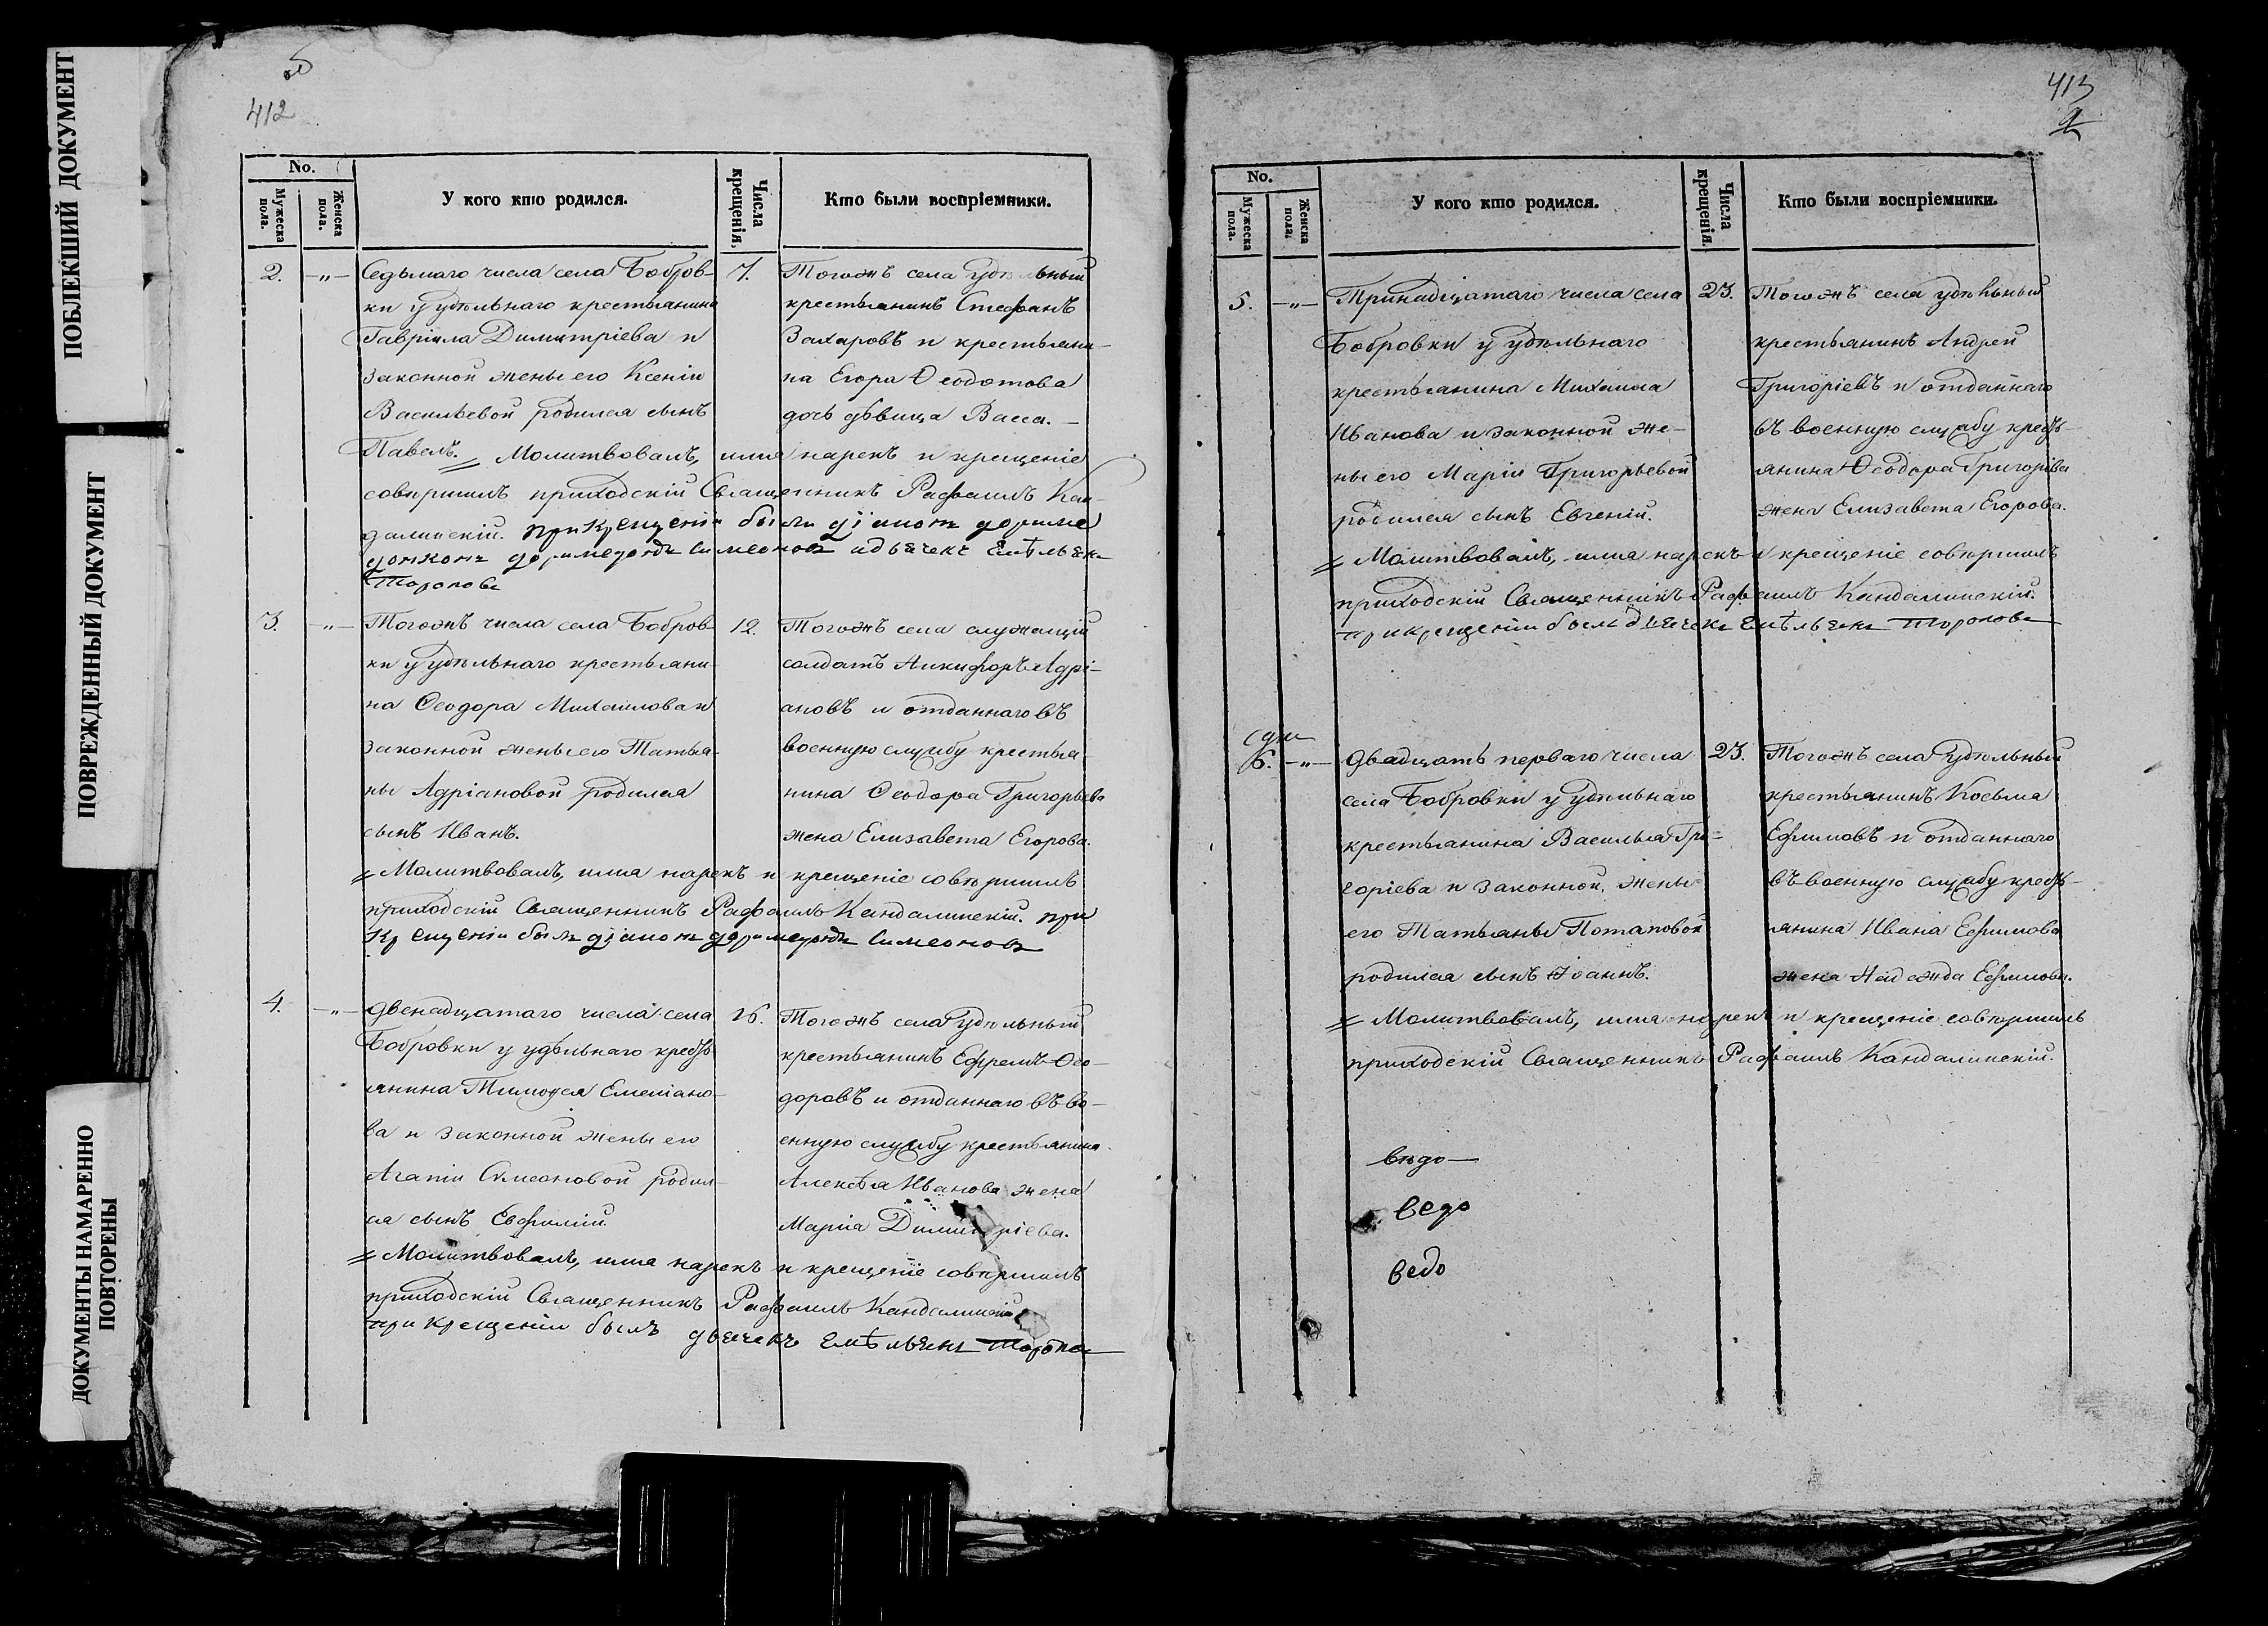 ПОБЛЕКШИЙ ДОКУМЕНТ
ПОВРЕЖДЕННЫЙ ДОКУМЕНТ
ДОКУМЕНТЫ НАМАРЕННО
ПОВТОРЕНЫ
412
No.
Мужеска пола.
Женска пола.
У кого кто родился.
Числа крещенія.
Кто были воспріемники.
2.
Седьмаго числа села Бобров-
ки у удѣльнаго крестьянина
Гавріила Димитріева и
законной жены его Ксеніи
Васильевой родился сынъ
Павелъ.
7.
Тогожъ села удѣльный
крестьянинъ Стефанъ
Захаровъ и крестьяни-
на Егора Ѳеодотова
дочь дѣвица Васса.
Молитвовалъ, имя нарекъ и крещеніе
совершилъ приходскій Священникъ Рафаилъ Кан-
далинскій. при крещеніи были
Симеоновъ
Тороповъ
3.
Тогожъ числа села Бобров-
ки у удѣльнаго крестьяни-
на Ѳеодора Михайлова и
законной жены его Татья-
ны Адріановой родился
сынъ Иванъ.
12.
Тогожъ села служащій
солдатъ Никифоръ Адрі-
ановъ и отданнаго въ
военную службу крестья-
нина Ѳеодора Григорьева
жена Елизавета Егорова.
Молитвовалъ, имя нарекъ и крещеніе совершилъ
приходскій Священникъ Рафаилъ Кандалинскій. при
крещеніи былъ діаконъ Симеоновъ
4.
Двенадцатаго числа села
Бобровки у удѣльнаго кресть-
янина Тимоѳея Емельяно-
ва и законной жены его
Агапіи Симеоновой родил-
ся сынъ Евфимій.
16.
Тогожъ села удѣльный
крестьянинъ Ефремъ Ѳео-
доровъ и отданнаго въ во-
енную службу крестьянина
Алексѣя Иванова жена
Марія Димитріева.
Молитвовалъ, имя нарекъ и крещеніе совершилъ
приходскій Священникъ Рафаилъ Кандалинскій
при крещеніи былъ дьячекъ Емѣльянъ Тороповъ
413
No.
Мужеска пола.
Женска пола.
У кого кто родился.
Числа крещенія.
Кто были воспріемники.
5.
Тринадцатаго числа села
Бобровки у удѣльнаго
крестьянина Михаила
Иванова и законной же-
ны его Маріи Григорьевой
родился сынъ Евгеній.
23.
Тогожъ села удѣльный
крестьянинъ Андрей
Григоріевъ и отданнаго
въ военную службу кресть-
янина Ѳеодора Григоріева
жена Елизавета Егорова.
Молитвовалъ, имя нарекъ и крещеніе совершилъ
приходскій Священникъ Рафаилъ Кандалинскій.
при крещеніи былъ дьячекъ Емѣльянъ Тороповъ
6.
Двадцать перваго числа
села Бобровки у удѣльнаго
крестьянина Василья Гри-
горіева и законной жены
его Татьяны Потаповой
родился сынъ Іоаннъ.
23.
Тогожъ села удѣльный
крестьянинъ Косьма
Ефимовъ и отданнаго
въ военную службу кресть-
янина Ивана Ефимова
жена Надежда Ефимова.
Молитвовалъ, имя нарекъ и крещеніе совершилъ
приходскій Священникъ Рафаилъ Кандалинскій.
ведо
ведо